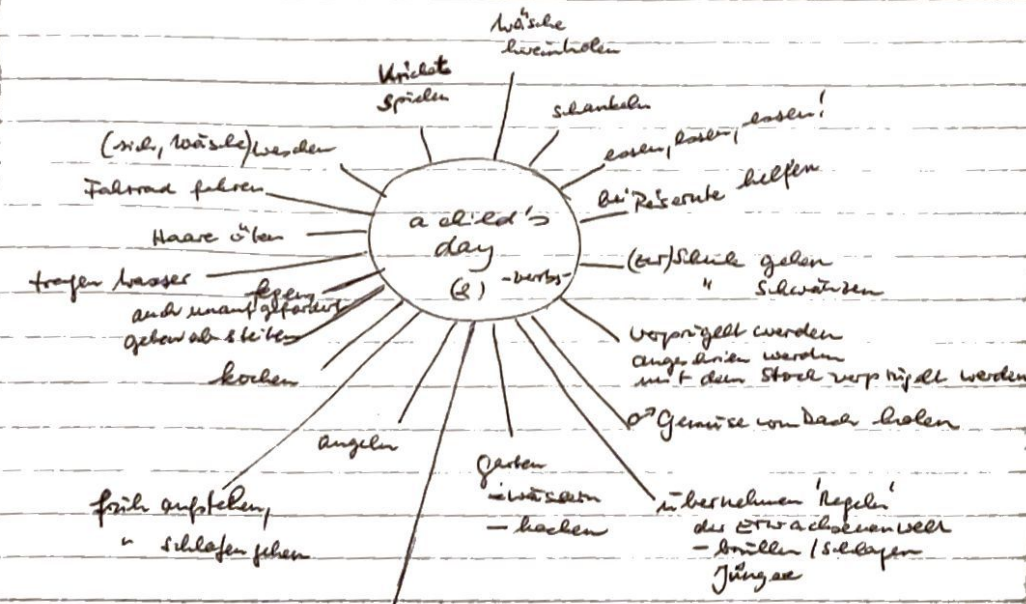 Wäsche
hereinholen
Kricket
spielen
schaukeln
essen, essen, essen!
bei Reisernte helfen
(zur) Schule gehen
" schwänzen
verprügelt werden
angeschrien werden
mit dem Stock verprügelt werden
♂ Gemüse vom Dach holen
übernehmen 'Regeln'
der Erwachsenenwelt
- brüllen / schlagen
Jüngere
Garten
- wässern
- hacken
angeln
früh aufstehen,
" schlafen gehen
kochen
fegen
auch unaufgefordert
geben ab
tragen Wasser
Haare ölen
Fahrrad fahren
(sich, Wäsche) waschen
a child's
day
(2) -verbs-